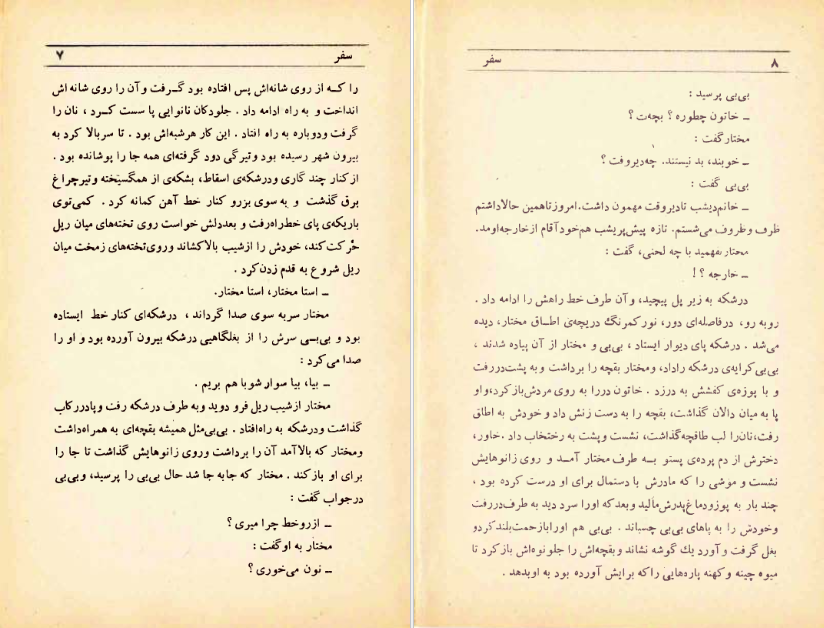 سفر ۷
را کـه از روی شانه‌اش پس افتاده بود گـرفت وآن را روی شانه اش
انداخت و به راه ادامه داد . جلودکان نانوایی پا سست کـرد ، نان را
گرفت ودوباره به راه افتاد . این کار هرشبه‌اش بود . تا سربالا کرد به
بیرون شهر رسیده بود وتیرگی دود گرفته‌ای همه جا را پوشانده بود .
ازکنار چند گاری ودرشکه‌ی اسقاط، بشکه‌ی از همگسیخته وتیرچراغ
برق گذشت و به سوی بزرو کنار خط آهن کمانه کرد . کمی‌توی
باریکه‌ی پای خط‌راه‌رفت و بعددلش خواست روی تخته‌های میان ریل
حرکت‌کند، خودش را ازشیب بالاکشاند وروی‌تخته‌های زمخت میان
ریل شروع به قدم زدن‌کرد .
ــ استا مختار، استا مختار.
مختار سربه سوی صدا گرداند ، درشکه‌ای کنار خط ایستاده
بود و بی‌بـی سرش را از بغلگاهیی درشکه بیرون آورده بود و او را
صدا می‌کرد :
ــ بیا، بیا سوار شوبا هم بریم .
مختار ازشیب ریل فرو دوید وبه طرف درشکه رفت وپادررکاب
گذاشت ودرشکه به راه‌افتاد . بی‌بی‌مثل همیشه بقچه‌ای به همراه‌داشت
ومختار که بالاآمد آن را برداشت وروی زانوهایش گذاشت تا جا را
برای او بازکند . مختار که جابه جا شد حال بی‌بی را پرسید، وبی‌بی
درجواب گفت :
ــ ازروخط چرا میری ؟
مختار به اوگفت :
ــ نون می‌خوری ؟
سفر ۸
بی‌بی پرسید :
ــ خاتون چطوره ؟ بچه‌ت ؟
مختارگفت :
ــ خوبند، بد نیستند. چه‌دیروقت ؟
بی‌بی گفت :
ــ خانم‌دیشب تادیروقت مهمون داشت.امروزتاهمین حالاداشتم
ظرف وظروف می‌شستم. تازه پیش‌پریشب هم‌خودآقام ازخارجه‌اومد.
مختار نفهمید با چه لحنی، گفت :
ــ خارجه ؟!
درشکه به زیر پل پیچید، وآن طرف خط راهش را ادامه داد .
روبه رو، درفاصله‌ای دور، نورکمرنگ دریچه‌ی اطـاق مختار، دیده
می‌شد . درشکه پای دیوار ایستاد ، بی‌بی و مختار از آن پیاده شدند ،
بی‌بی‌کرایه‌ی درشکه راداد، ومختار بقچه را برداشت و به پشت‌دررفت
و با پوزه‌ی کفشش به درزد . خاتون دررا به روی مردش‌بازکرد،واو
پا به میان دالان گذاشت، بقچه را به دست زنش داد و خودش به اطاق
رفت،نان‌را لب طاقچه‌گذاشت، نشست وپشت به رختخاب داد .خاور،
دخترش از دم پرده‌ی پستو بـه طرف مختار آمـد و روی زانوهایش
نشست و موشی را که مادرش با دستمال برای او درست کرده بود .
چند بار به پوزودماغ‌پدرش‌مالید وبعدکه اورا سرد دید به طرف‌دررفت
وخودش را به پاهای بی‌بی چسباند . بی‌بی هم اورابازحمت‌بلندکردو
بغل گرفت و آورد یك گوشه نشاند وبقچه‌اش را جلونوه‌اش بازکرد تا
میوه چینه و کهنه پاره‌هایی راکه برایش آورده بود به اوبدهد .